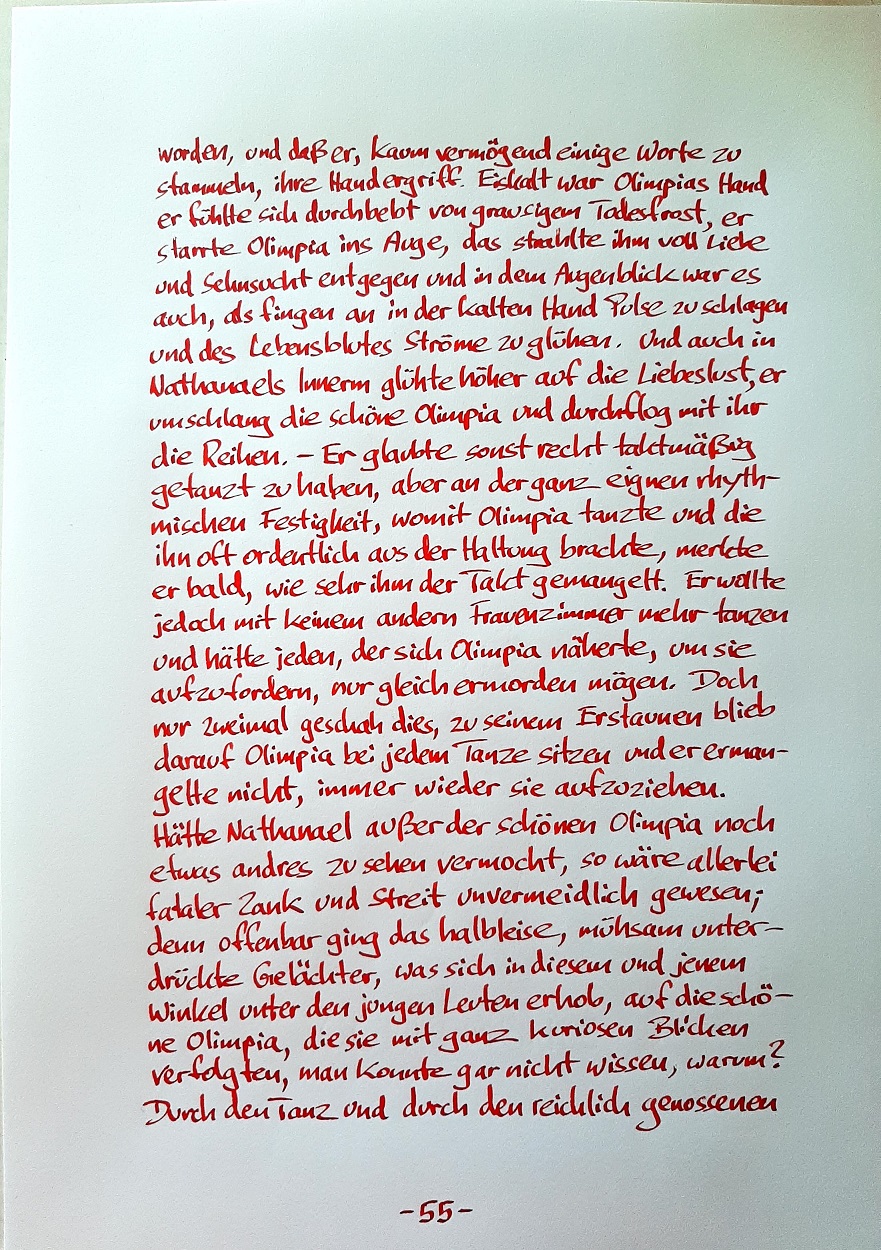 worden, und daß er, kaum vermögend einige Worte zu
stammeln, ihre Hand ergriff. Eiskalt war Olimpias Hand
er fühlte sich durchbebt von grausigem Todesfrost, er
starrte Olimpia ins Auge, das strahlte ihm voll Liebe
und Sehnsucht entgegen und in dem Augenblick war es
auch, als fingen an in der kalten Hand Pulse zu schlagen
und des Lebensblutes Ströme zu glühen. Und auch in
Nathanaels Innerm glühte höher auf die Liebeslust, er
umschlang die schöne Olimpia und durchflog mit ihr
die Reihen. – Er glaubte sonst recht taktmäßig
getanzt zu haben, aber an der ganz eignen rhyth-
mischen Festigkeit, womit Olimpia tanzte und die
ihn oft ordentlich aus der Haltung brachte, merkte
er bald, wie sehr ihm der Takt gemangelt. Er wollte
jedoch mit keinem andern Frauenzimmer mehr tanzen
und hätte jeden, der sich Olimpia näherte, um sie
aufzufordern, nur gleich ermorden mögen. Doch
nur zweimal geschah dies, zu seinem Erstaunen blieb
darauf Olimpia bei jedem Tanze sitzen und er erman-
gelte nicht, immer wieder sie aufzuziehen.
Hätte Nathanael außer der schönen Olimpia noch
etwas andres zu sehen vermocht, so wäre allerlei
fataler Zank und Streit unvermeidlich gewesen;
denn offenbar ging das halbleise, mühsam unter-
drückte Gelächter, was sich in diesem und jenem
Winkel unter den jungen Leuten erhob, auf die schö-
ne Olimpia, die sie mit ganz kuriosen Blicken
verfolgten, man konnte gar nicht wissen, warum?
Durch den Tanz und durch den reichlich genossenen
-55-